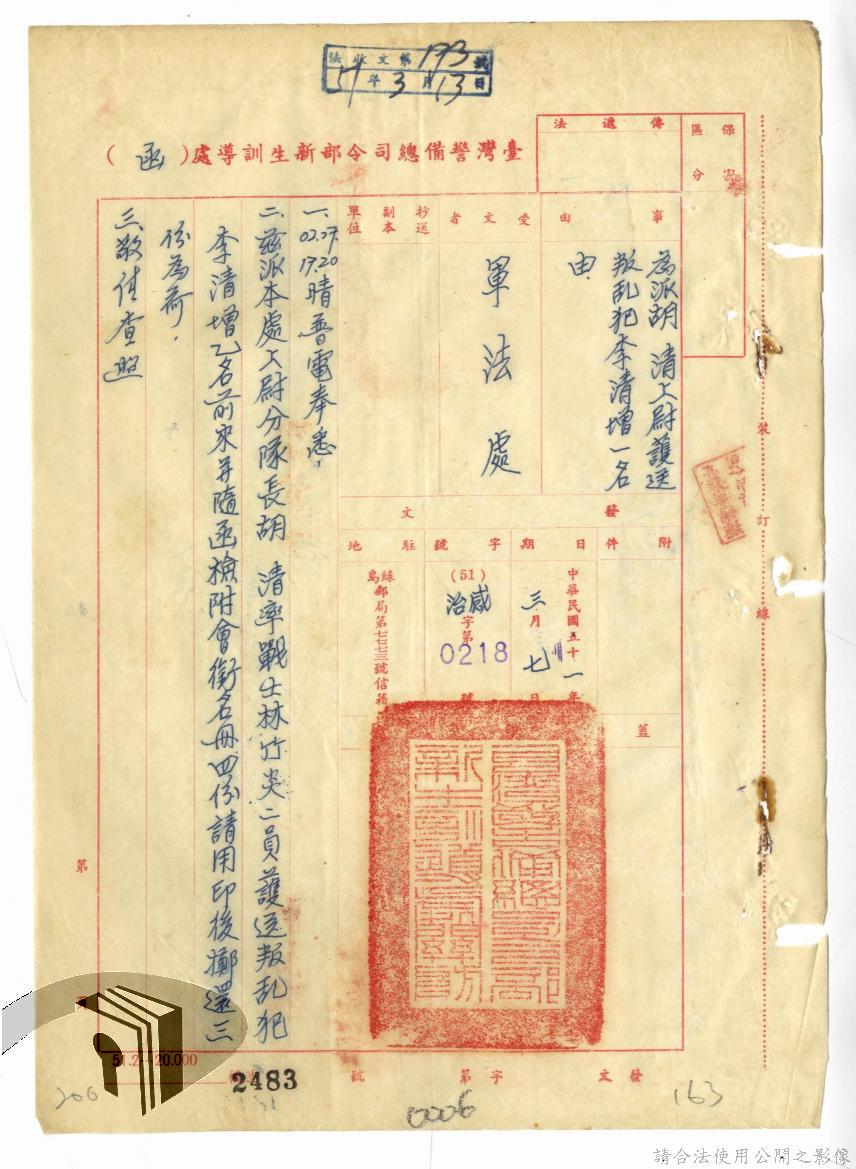 法收文第193號
51年3月13日
保密區分
傳遞法
臺灣警備總司令部新生訓導處(函)
事由
為派胡 清上尉護送
叛乱犯李清增一名
由
受文者
軍法處
抄送副本單位
發文
附件
日期
中華民國五十一年
三月七日
字號
(51)
威治字第0218號
駐地
綠島郵局第七七七三號信箱
蓋
一、02.27.17.20晴普電奉悉,
二、茲派本處上尉分隊長胡 清率戰士林竹炎二員護送叛乱犯
李清增乙名前來并隨函檢附會銜名冊四份請用印後擲還三
份為荷,
三、敬請查照
裝訂線
第
51.2 20.000
2483
發文 字第 號
206
0006
163
請合法使用公開之影像